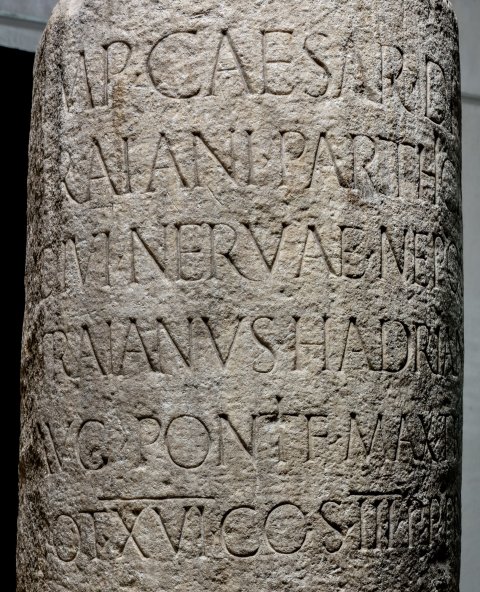 IMP·CAESAR·D
TRAIANI·PARTHI
DIVI·NERVAE·NEPO
TRAIANVS HADRIAN
AVG·PONTIF·MAXI
POT XVI COS III P P